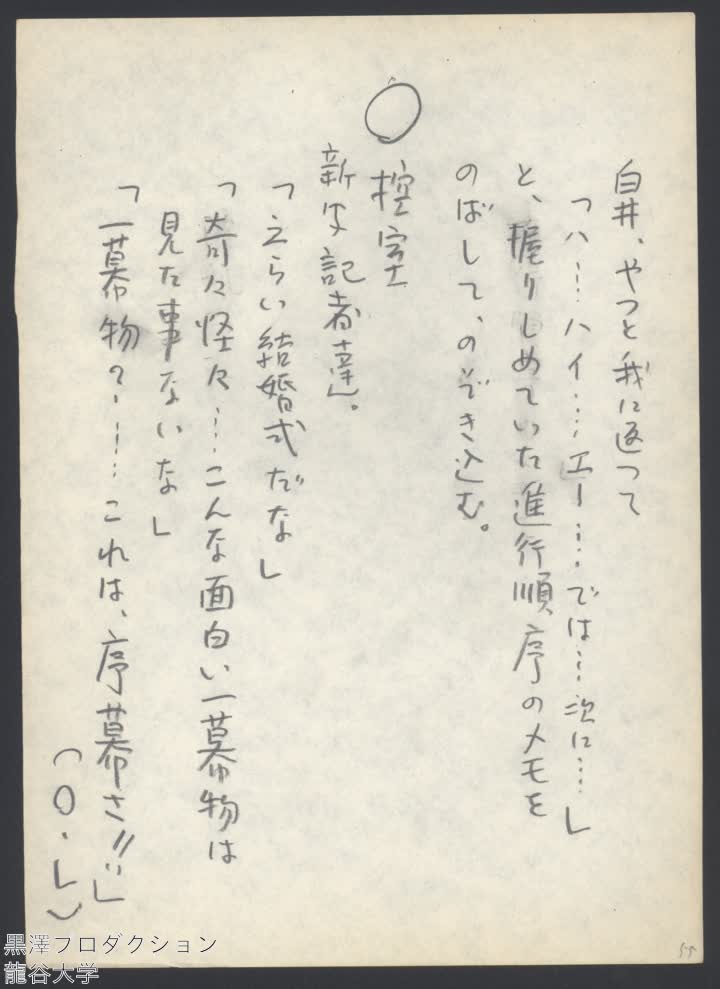 白井、やっと我に返って
「ハ……ハイ……エー……では……次に……」
と、握りしめていた進行順序のメモを
のばして、のぞき込む。
○
控室
新聞記者達。
「えらい結婚式だな」
「奇々怪々……こんな面白い一幕物は
見た事ないな」
「一幕物？……これは、序幕さ!!」
（O・L）
55
黒澤プロダクション
龍谷大学